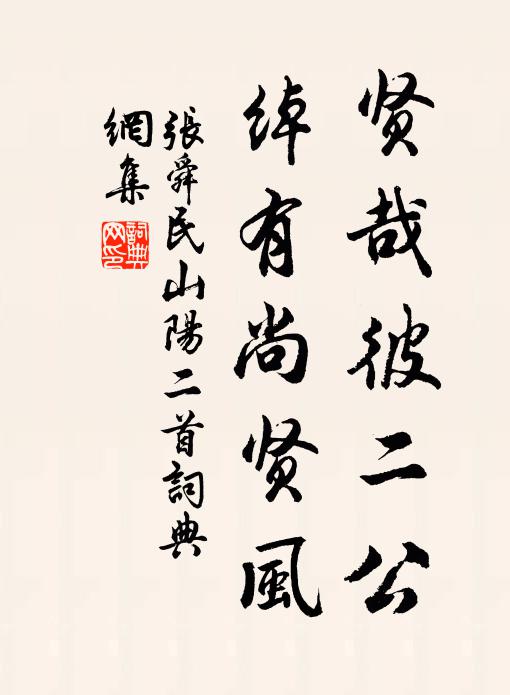 贤哉彼二公
绰有尚贤風
張舜民山陽二首詞典
網集
詞典
网印